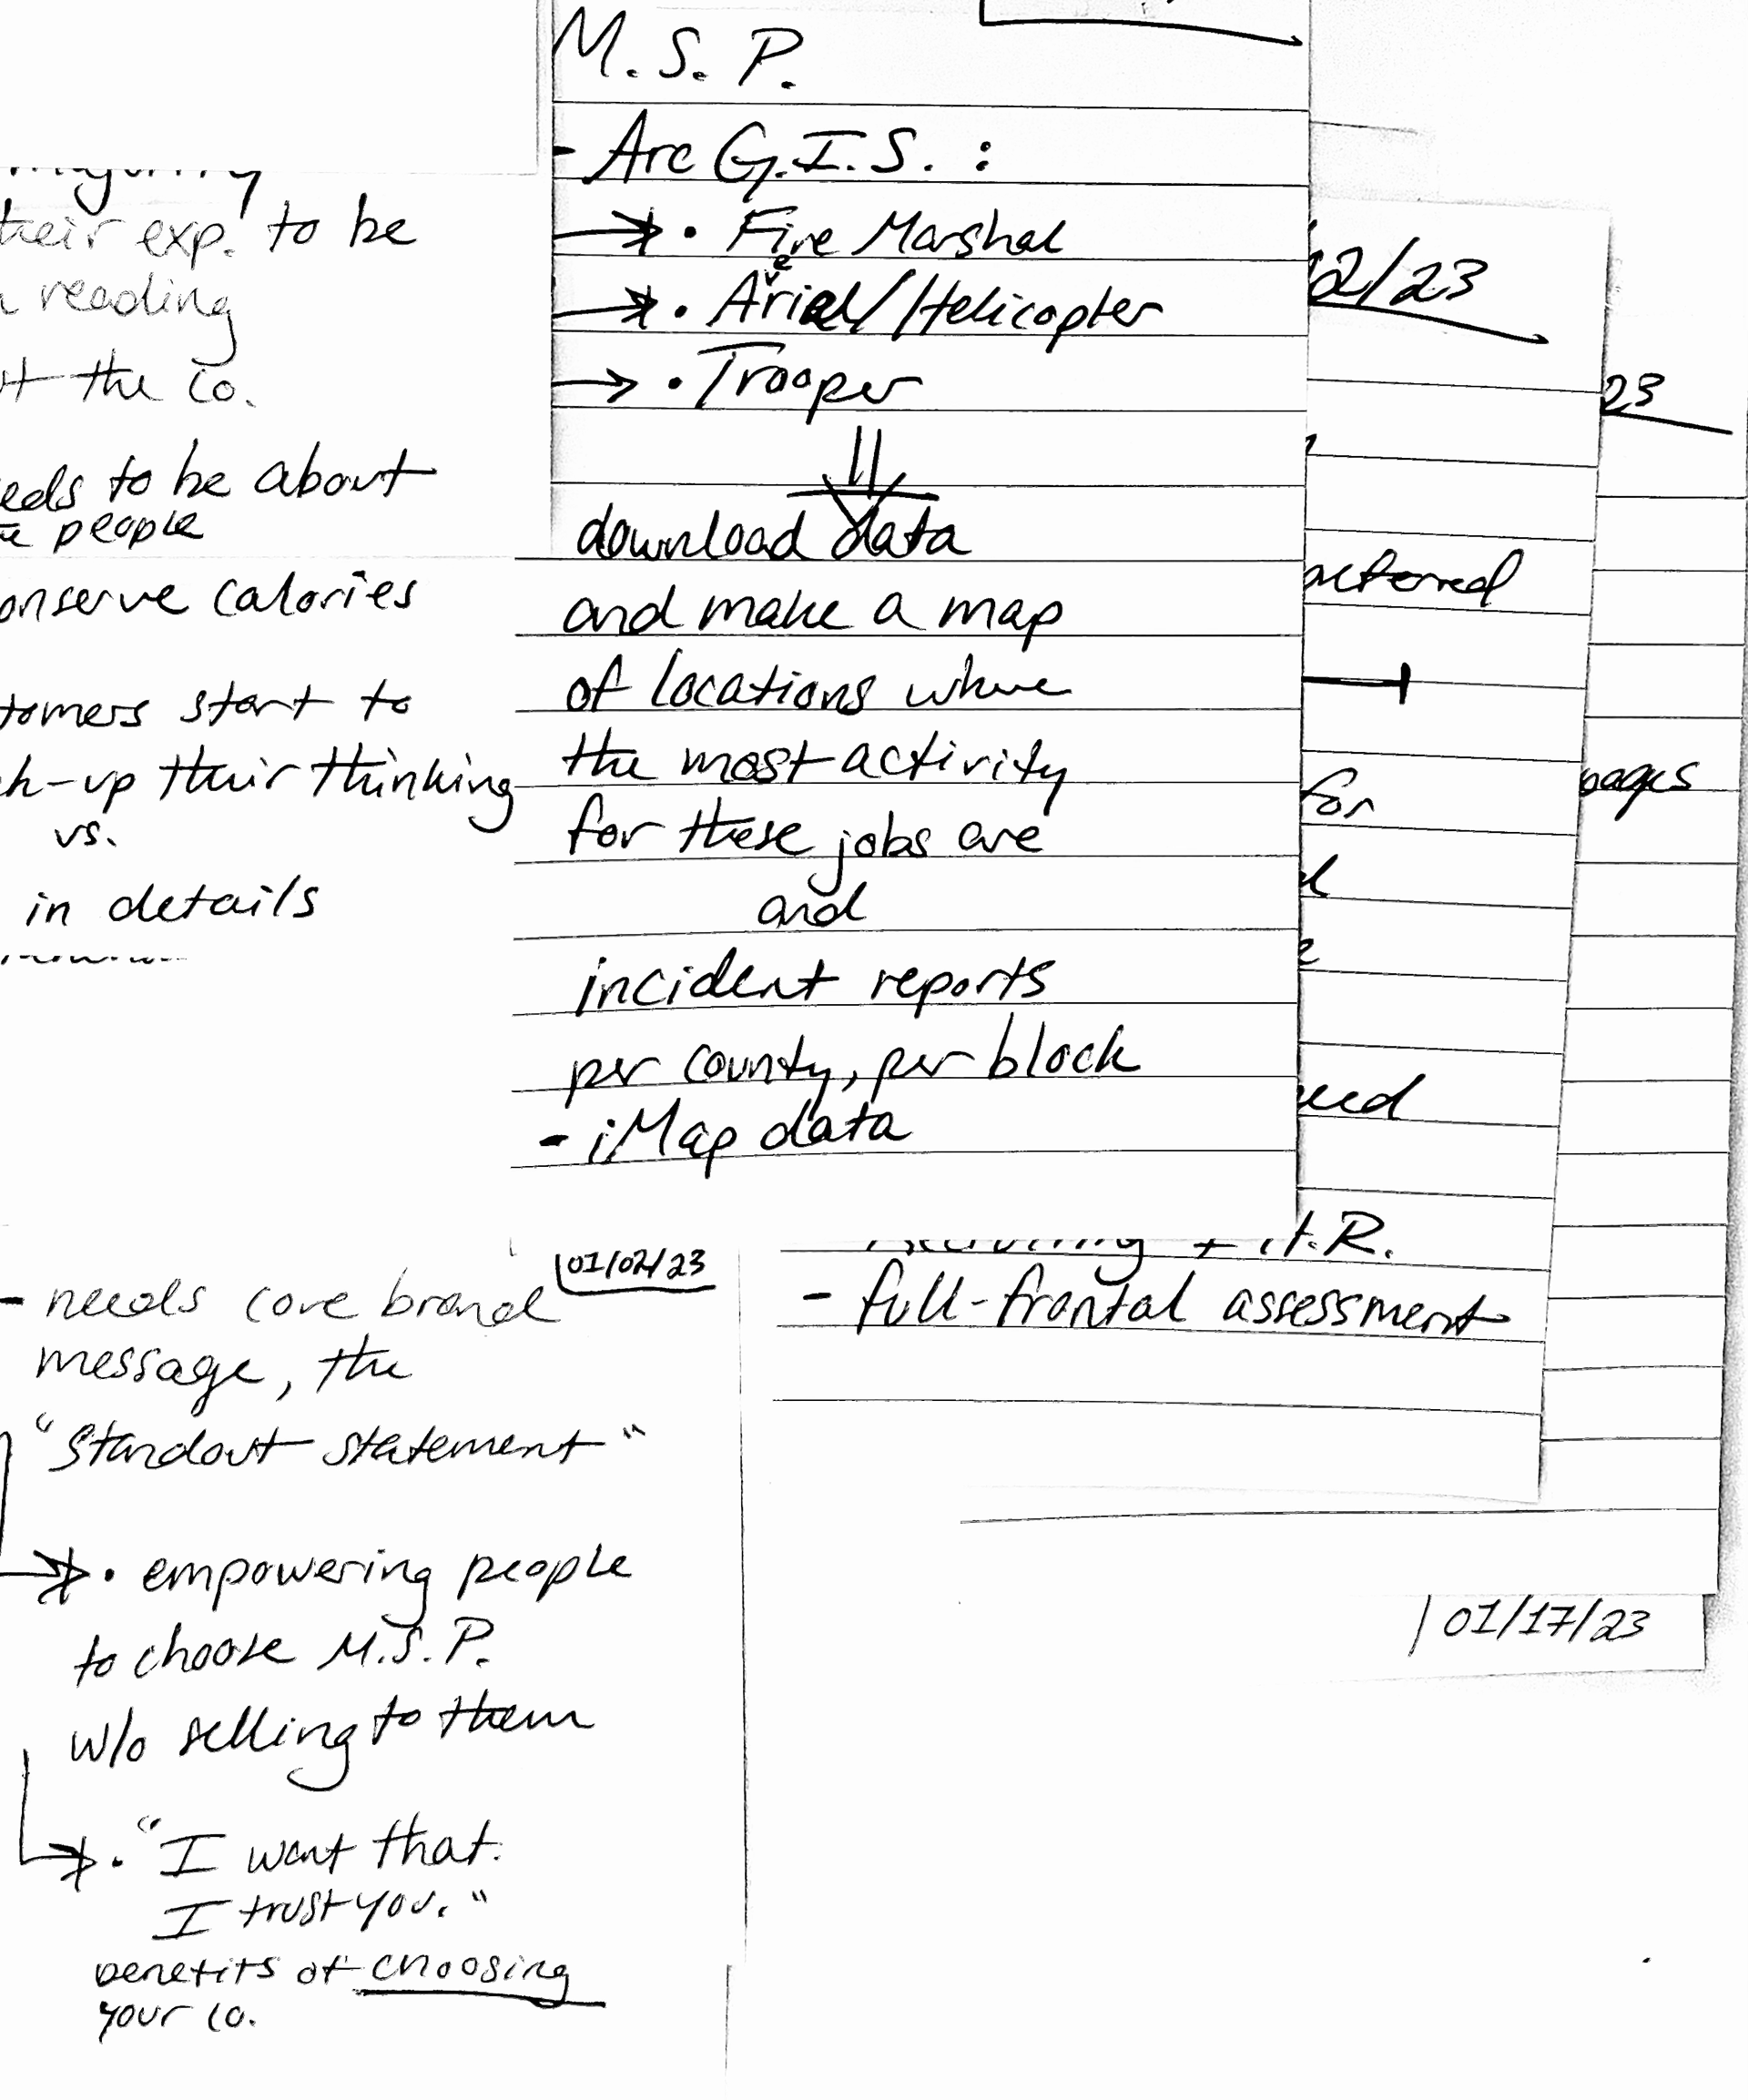 M.S.P.
- Arc G.I.S. :
→ • Fire Marshal
→ • Ariel/Helicopter
e
→ • Trooper
download data
and make a map
of locations where
the most activity
for these jobs are
and
incident reports
per county, per block
- iMap data
majority
their exp. to be
reading
the co.
to be about
people
conserve calories
start to
-up their thinking
vs.
in details
01/02/23
- needs core brand
message, the
"Standout statement"
→ • empowering people
to choose M.S.P.
w/o selling to them
→ • "I want that.
I trust you."
benefits of choosing
your co.
2/23
for
H.R.
- full-frontal assessment
23
pages
01/17/23